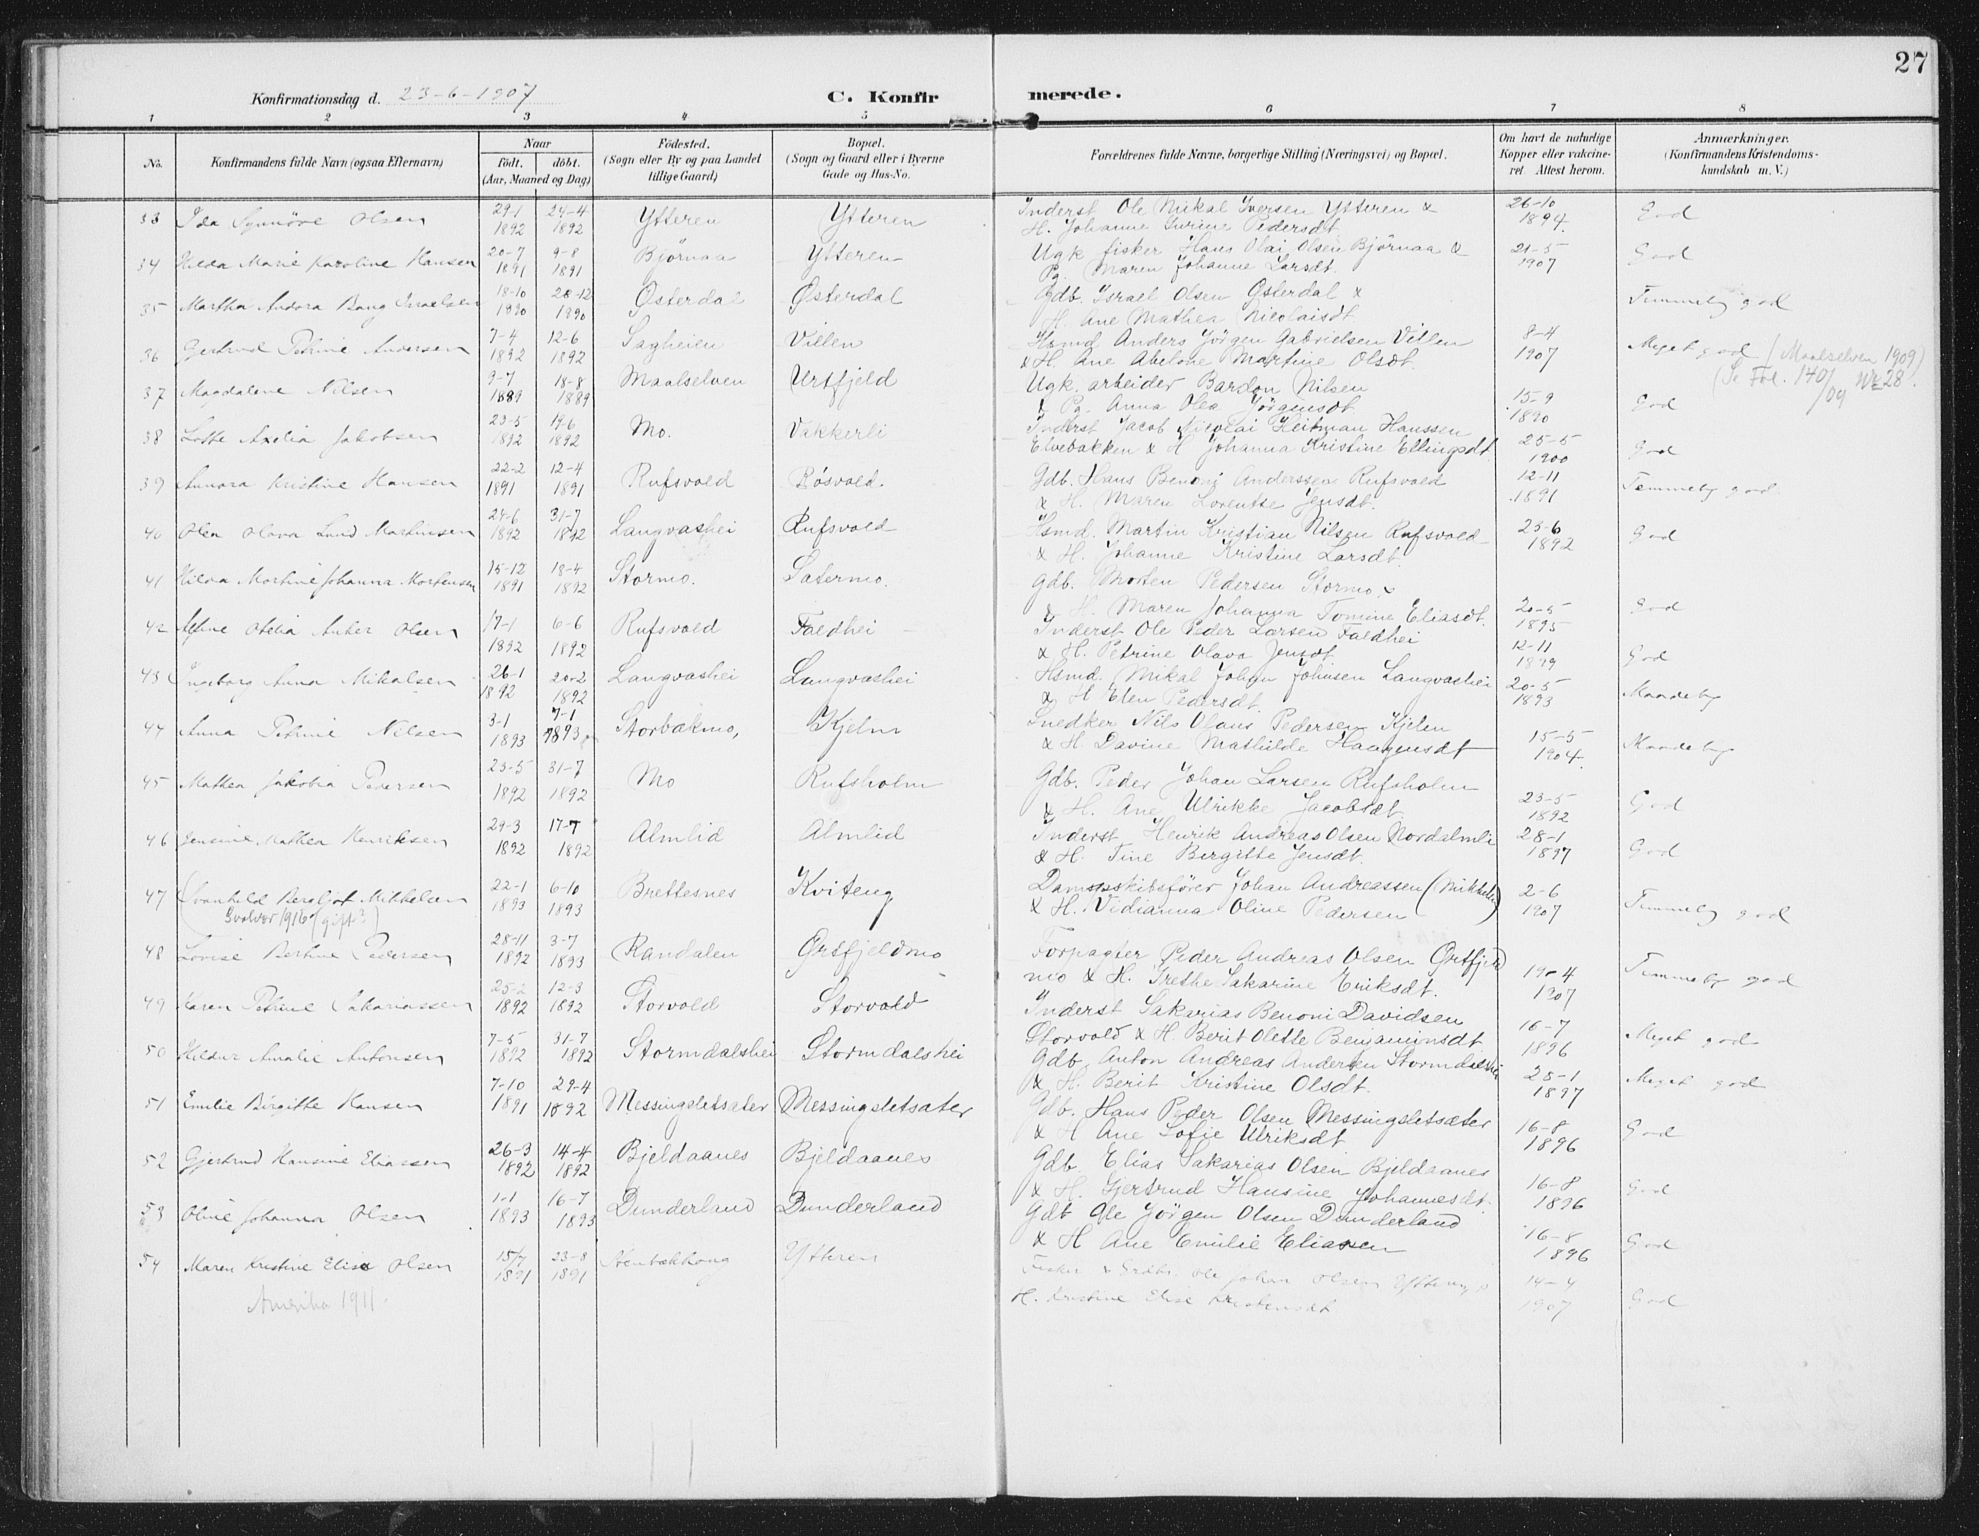 27
Konfirmationsdag d. 23-6-1907 C. Konfirmerede.
1 2 3 4 5 6 7 8
No. Konfirmandens fulde Navn (ogsaa Efternavn) Naar födt. döbt. (Aar, Maaned og Dag) Födested. (Sogn eller By og paa Landet tillige Gaard) Bopæl. (Sogn og Gaard eller i Byerne Gade og Hus-No. Forældrenes fulde Navne, borgerlige Stilling (Næringsvei) og Bopæl. Om havt de naturlige Kopper eller vakcineret. Attest herom. Anmærkninger. (Konfirmandens Kristendomskundskab m. V.)
33 Ida Synnöve Olsen 29-1 1892 24-4 1892 Ytteren Ytteren Inderst Ole Mikal Iversen Ytteren & H. Johanne Surine Pedersdt 26-10 1894. God
34 Hilda Marie Karoline Hansen 20-7 1891 9-8 1891 Bjørnaa Ytteren Ugk. fisker Hans Olai Olsen Bjørnaa & Pg. Maren Johanne Larsdt. 21-5 1907 God
35 Martha Andora Bang Israelsen 18-10 1890 28-12 1890 Østerdal Østerdal Gdb. Israel Olsen Østerdal & H. Ane Mathea Nicolaisdt Temmelig god
36 Gjertrud Petrine Andersen 7-4 1892 12-6 1892 Sagheien Villen Hsmd Anders Jörgen Gabrielsen Villen & H. Ane Abelone Martine Olsdt. 8-4 1907 Meget god (Maalselven 1909)
37 Magdalene Nilsen 9-7 1889 18-8 1889 Maalselven Urtfjeld Ugk. arbeider Bardon Nilsen & Pg. Anna Olea Jörgensdt 15-9 1890 God (Se Fol. 140/09 Nr 28.
38 Lotte Axelia Jakobsen 23-5 1892 19-6 1892 Mo. Vakkerli Inderst Jacob Nicolai Heitman Hanssen Elvebakken & H Johanna Kristine Ellingsdt. 25-5 1900 God
39 Annora Kristine Hansen 22-2 1891 12-4 1891 Rufsvold Røsvold. Gdb. Hans Benonj Anderssen Rufsvold & H. Maren Lorentse Jensdt. 12-11 1891 Temmelig god
40 Olea Olava Lund Martinsen 24-6 1892 31-7 1892 Langvashei Rufsvold Hsmd. Martin Kristian Nilsen Rufsvold & H. Johanne Kristine Larsdt. 23-6 1892 God
41 Hilda Martine Johanna Mortensen 15-12 1891 18-4 1892 Stormo. Satermo. Gdb. Morten Pedersen Stormo & H. Maren Johanna Tomine Eliasdt. 20-5 1895 God
42 Otelia Anker Olsen 17-1 1892 6-6 1892 Rufsvold Faldhei Inderst Ole Peder Larsen Faldhei & H. Petrine Olava Jensdt 12-11 1899 God
43 Ingeborg Anna Mikalsen 26-1 1892 20-2 1892 Langvashei Langvashei Hsmd. Mikal Johan Johnsen Langvashei & H Elen Pedersdt. 20-5 1893 Maadelig
44 Anna Petrine Nilsen 3-1 1893 7-1 1893 Storbækmo, Kjelen Snedker Nils Olaus Pedersen Kjelen & H. Davine Mathilde Haagensdt 15-5 1904. Maadelig
45 Mathea Jakobia Pedersen 23-5 1892 31-7 1892 Mo Rufsholm Gdb. Peder Johan Larsen Rufsholm & H. Ane Ulrikke Jacobsdt. 23-5 1892 God
46 Jensine Mathea Henriksen 29-3 1892 17-7 1892 Almlid Almlid Inderst Henrik Andreas Olsen Nordalmli & H. Tine Birgitte Jensdt. 28-1 1897 God
47 Svanhild Bergljot Mikkelsen 22-1 1893 6-10 1893 Brettesnes Kviteng Dampskibsfører Johan Andreassen (Mikkelsen) & H. Vedianna Oline Pedersen 2-6 1907 Temmelig god
Svolvær 1916 (gift?)
48 Lovise Bertine Pedersen 28-11 1892 3-7 1893 Randalen Ørtfjeldmo Forpagter Peder Andreas Olsen Ørtfjeldmo & H. Grethe Sakarine Eriksdt. 19-4 1907 Temmelig god
49 Karen Petrine Sakariassen 25-2 1892 12-3 1892 Storvold Storvold Inderst Sakarias Benoni Davidsen Storvold & H. Berit Olette Benjaminsdt 16-7 1896 Meget god
50 Hildur Amalie Antonsen 7-5 1892 31-7 1892 Stormdalshei Stormdalshei Gdb. Anton Andreas Andersen Stormdalshei & H. Berit Kristine Olsdt. 28-1 1897 Meget god
51 Emilie Birgitte Hansen 7-10 1891 29-4 1892 Messingsletsæter Messingsletsæter Gdb. Hans Peder Olsen Messingsletsæter & H Ane Sofie Ulriksdt 16-8 1896 God
52 Gjertrud Hansine Eliassen 26-3 1892 14-4 1892 Bjeldaanes Bjeldaanes Gdb. Elias Sakarias Olsen Bjeldaanes & H. Gjertrud Hansine Johannesdt. 16-8 1896 God
53 Oline Johanna Olsen 1-1 1893 16-7 1893 Dunderland Dunderland Gdb Ole Jörgen Olsen Dunderland & H Ane Emilie Eliassen 16-8 1896 God
54 Maren Kristine Elise Olsen 15/7 1891 23-8 1891 Ytteren Fisker & Grdbr. Ole Johan Olsen Ytteren & H. Kristine Elise Kristensdt 14-4 1907 God
Amerika 1911.